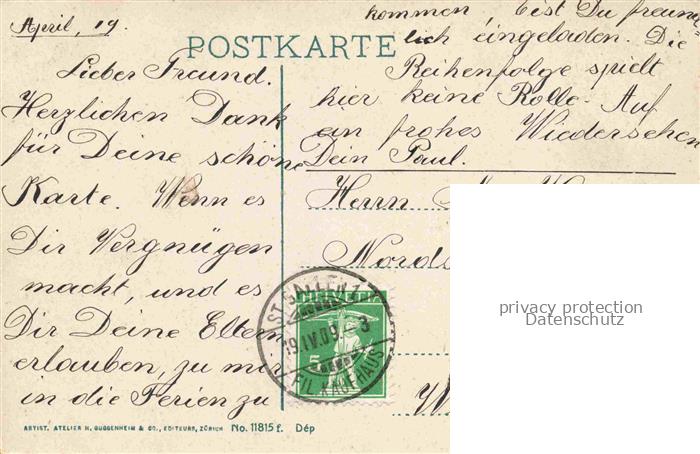 April, 19.
POSTKARTE
Lieber Freund.
Herzlichen Dank
für Deine schöne
Karte. Wenn es
Dir Vergnügen
macht, und es
Dir Deine Eltern
erlauben, zu mir
in die Ferien zu
kommen bist Du freund-
lich eingeladen. Die
Reihenfolge spielt
hier keine Rolle. Auf
ein frohes Wiedersehen
Dein Paul.
Herrn
Nords
W
ST. GALLEN 1
19.IV.09. 3
FIL. KAUFHAUS
HELVETIA
5
privacy protection
Datenschutz
ARTIST. ATELIER H. GUGGENHEIM & CO., EDITEURS, ZÜRICH No. 11815 f. Dép